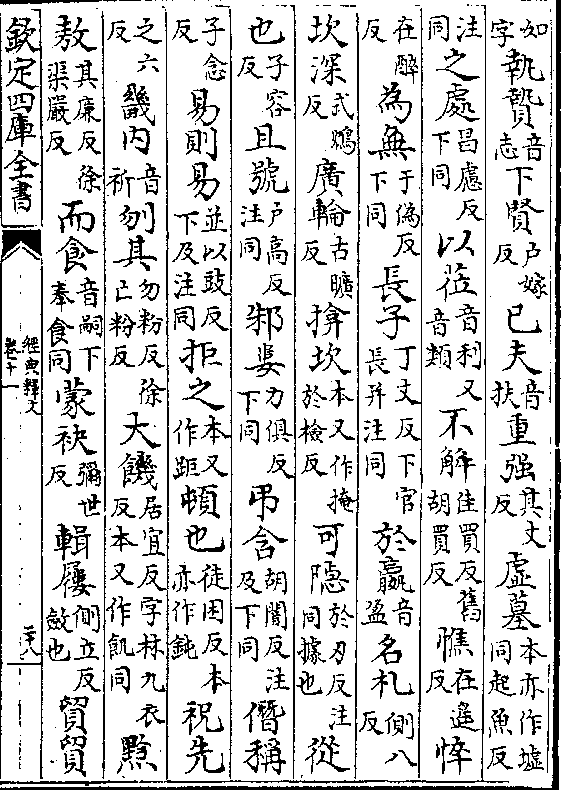 如字執贄音志下賢户嫁反已夫音扶重强其丈反虚墓本亦作墟同起魚反
注同之處昌慮反下同以莅音利又音類不解佳買反舊胡買反憔在遥反悴
在醉反為無于偽反下同長子丁丈反下官長并注同於嬴音盈名札側八反
坎深式鴆反廣輪古曠反揜坎本又作掩於檢反可隱於刃反注同據也從
也子容反且號户高反注同邾婁力俱反下同弔含胡闇反注及下同僭稱
子念反易則易並以豉反下及注同拒之本又作距頓也徒困反本亦作鈍祝先
之六反畿内音祈刎其勿粉反徐亡粉反大饑居宜反字林九衣反本又作飢同黔
敖其廉反徐渠嚴反而食音嗣下奉食同蒙袂彌世反輯屨側立反斂也貿貿
欽定四庫全書
經典釋文
卷十一
二十八